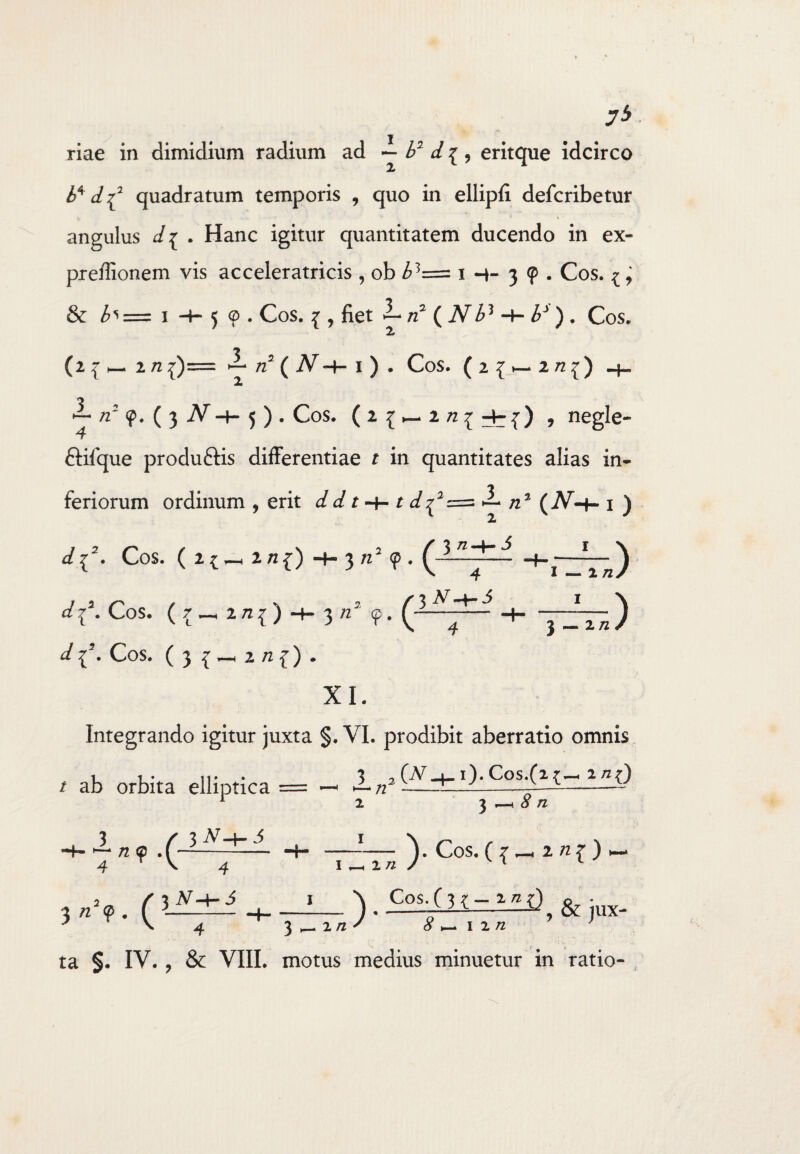 75
riae in dimidium radium ad 1/2 b² dζ, eritque idcirco
b⁴ dζ² quadratum temporis , quo in ellipſi deſcribetur
angulus dζ . Hanc igitur quantitatem ducendo in ex-
preſſionem vis acceleratricis , ob b³= 1 + 3 φ . Cos. ζ ,
& b⁵= 1 + 5 φ . Cos. ζ , fiet 3/2 n² ( N b³ + b⁵ ) . Cos.
(2ζ — 2nζ)= 3/2 n² ( N + 1 ) . Cos. ( 2ζ — 2nζ) +
3/4 n² φ. ( 3 N + 5 ) . Cos. ( 2 ζ — 2 n ζ ± ζ) , negle-
ctiſque productis differentiae t in quantitates alias in-
feriorum ordinum , erit d d t + t dζ² = 3/2 n² (N + 1 )
dζ². Cos. ( 2ζ — 2nζ) + 3 n² φ . ( (3 n + 5)/4 + 1/(1 — 2n) )
dζ². Cos. ( ζ — 2nζ ) + 3 n² φ. ( (3 N + 5)/4 + 1/(3 — 2n) )
dζ². Cos. ( 3 ζ — 2 n ζ) .
XI.
Integrando igitur juxta §. VI. prodibit aberratio omnis
t ab orbita elliptica = — 3/2 n² (N + 1). Cos.(2ζ — 2nζ)/(3 — 8 n)
+ 3/4 n φ .( (3 N + 5)/4 + 1/(1 — 2n) ). Cos. ( ζ — 2 n ζ ) —
3 n² φ . ( (3 N + 5)/4 + 1/(3 — 2n) ) . Cos. ( 3 ζ — 2 n ζ)/(8 — 12 n) , & jux-
ta §. IV. , & VIII. motus medius minuetur in ratio-